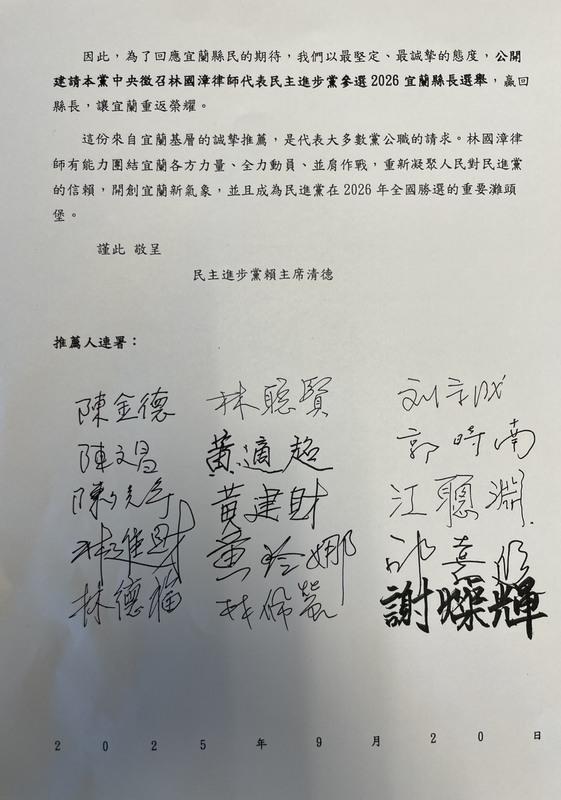 因此，為了回應宜蘭縣民的期待，我們以最堅定、最誠摯的態度，公開
建請本黨中央徵召林國漳律師代表民主進步黨參選2026宜蘭縣長選舉，贏回
縣長，讓宜蘭重返榮耀。
這份來自宜蘭基層的誠摯推薦，是代表大多數黨公職的請求。林國漳律
師有能力團結宜蘭各方力量、全力動員、並肩作戰，重新凝聚人民對民進黨
的信賴，開創宜蘭新氣象，並且成為民進黨在2026年全國勝選的重要灘頭
堡。
謹此 敬呈
民主進步黨賴主席清德
推薦人連署：
陳金德 林聰賢
陳文昌 黃適超 郭時南
黃建財 江聰淵
林進財
林德福 林佩螢 謝燦輝
2025年9月20日